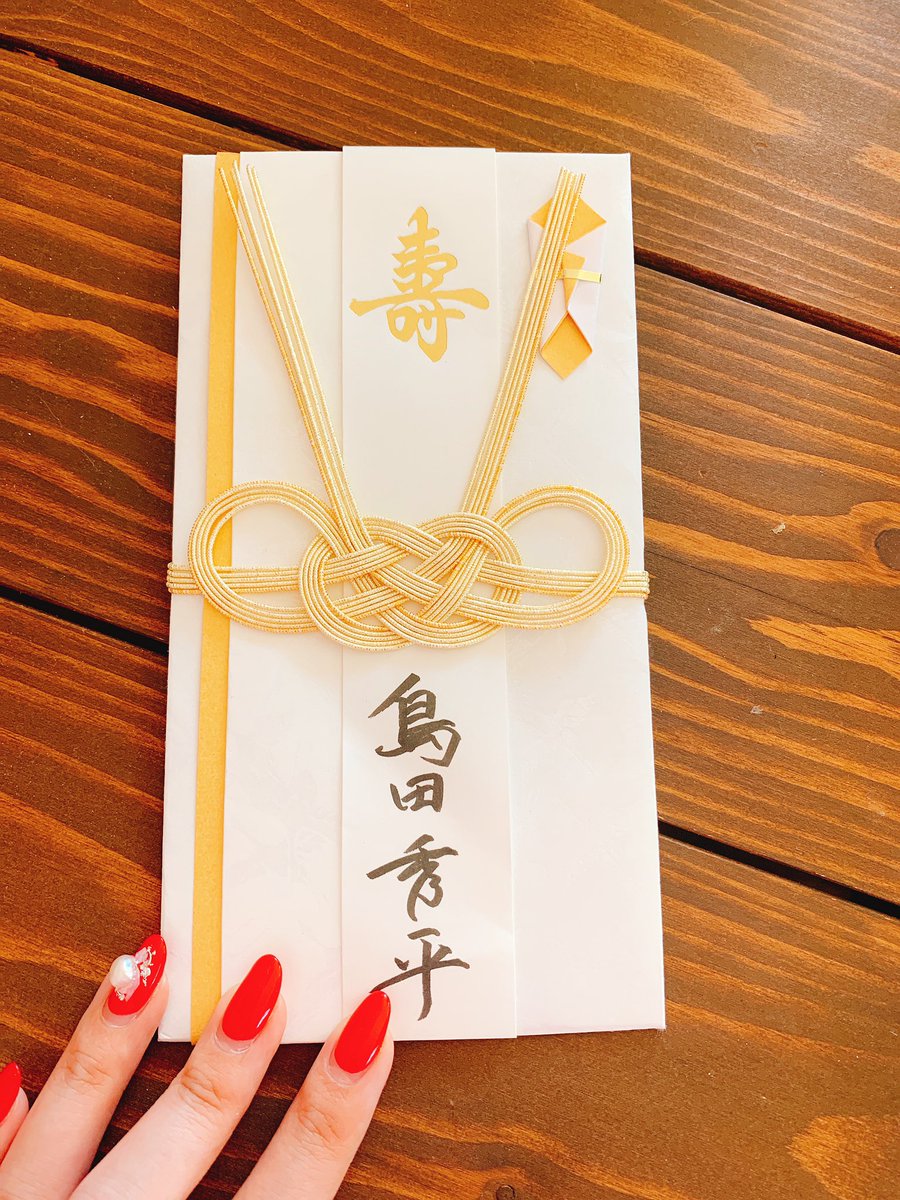 寿
島田秀平